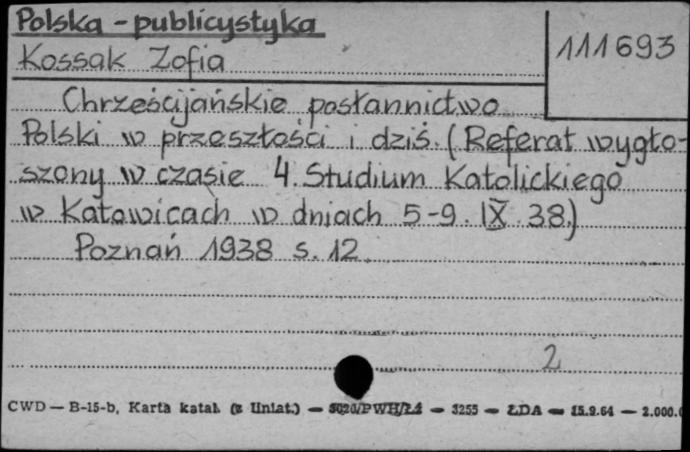 Polska - publicystyka
111693
Kossak Zofia
Chrześcijańskie posłannictwo
Polski w przeszłości i dziś. (Referat wygło-
szony w czasie 4. Studium Katolickiego
w Katowicach w dniach 5-9. IX 38.)
Poznań 1938 s. 12.
2
CWD — B-15-b, Karta katal. (z liniat.) — — 3255 — ŁDA — 15.9.64 — 2.000.